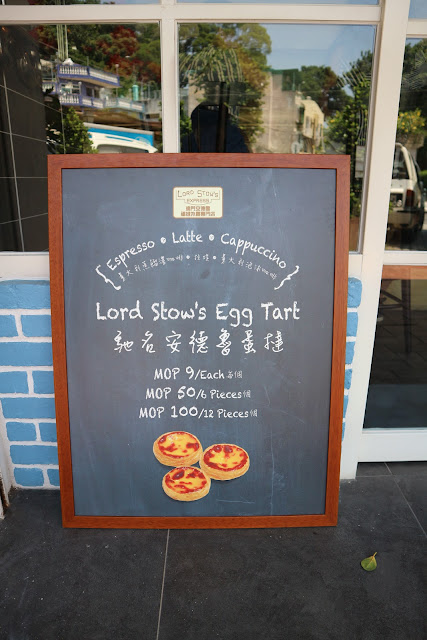 LORD STOW'S
EXPRESS
澳門安德魯
Espresso • Latte • Cappuccino
意大利蒸餾濃咖啡 • 拿鐵 • 意大利泡沫咖啡
Lord Stow's Egg Tart
馳名安德魯蛋撻
MOP 9/Each 每個
MOP 50/6 Pieces個
MOP 100/12 Pieces個